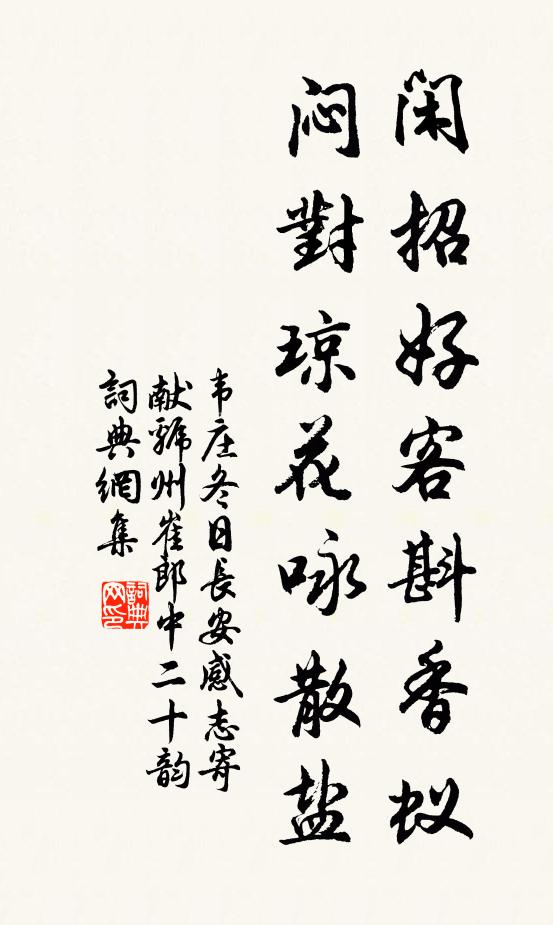 闲招好客斟香蚁
闷對琼花咏散盐
韦庄冬日長安感志寄
献虢州崔郎中二十韵
詞典網集
詞典網印